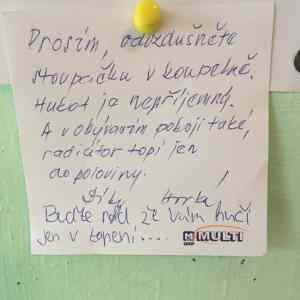 Prosím, odvzdušněte
stoupačku v koupelně.
Hukot je nepříjemný.
A v obývacím pokoji také,
radiátor topí jen
do poloviny.
Díky Horká!
Buďte rád že vám hučí
jen v topení....
MULTI